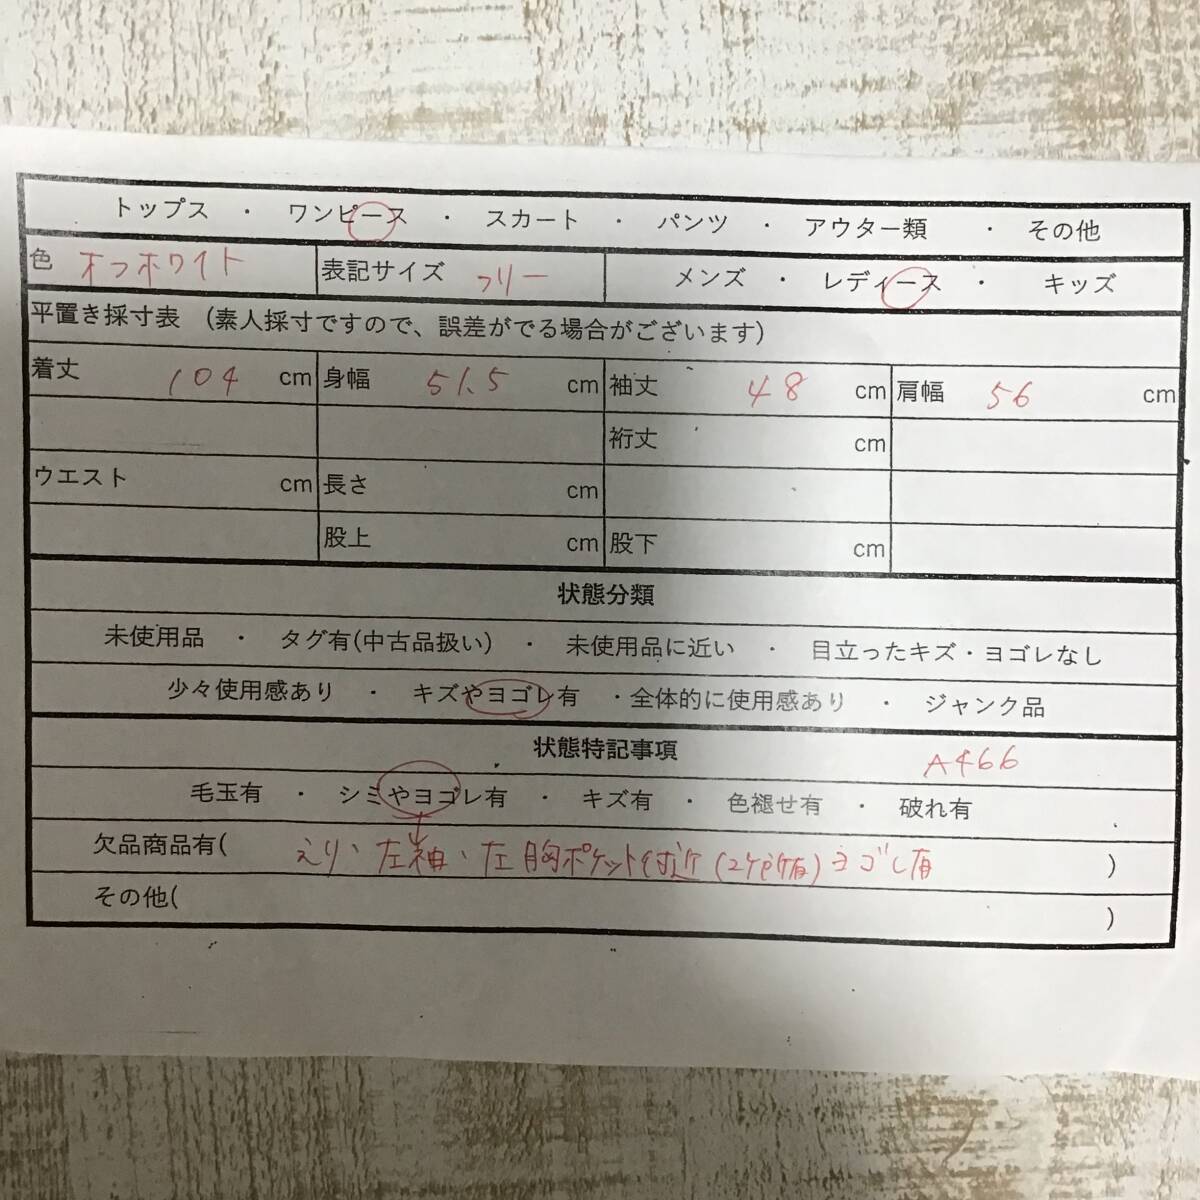 トップス ・ ワンピース ・ スカート ・ パンツ ・ アウター類 ・ その他
色 オフホワイト 表記サイズ フリー メンズ ・ レディース ・ キッズ
平置き採寸表 （素人採寸ですので、誤差がでる場合がございます）
着丈 104 cm 身幅 51.5 cm 袖丈 48 cm 肩幅 56 cm
裄丈 cm
ウエスト cm 長さ cm
股上 cm 股下 cm
状態分類
未使用品 ・ タグ有(中古品扱い) ・ 未使用品に近い ・ 目立ったキズ・ヨゴレなし
少々使用感あり ・ キズやヨゴレ有 ・全体的に使用感あり ・ ジャンク品
状態特記事項 A466
毛玉有 ・ シミやヨゴレ有 ・ キズ有 ・ 色褪せ有 ・ 破れ有
欠品商品有( えり、左袖、左胸ポケット付近(2ケ所有)ヨゴレ有 )
その他( )